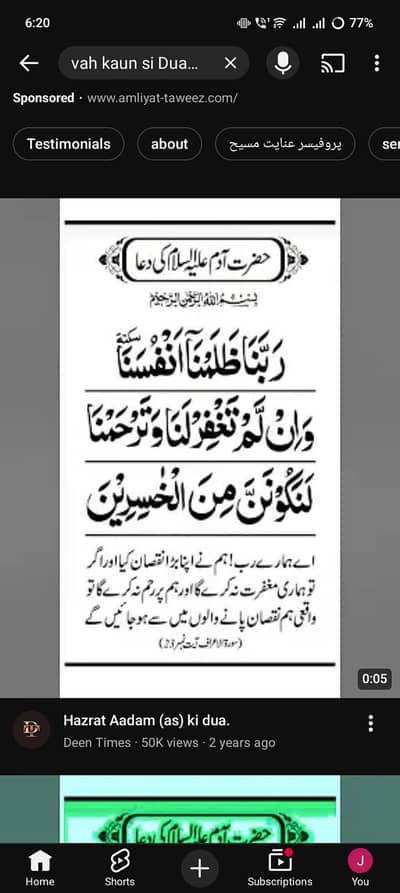 6:20
77%
vah kaun si Dua...
Sponsored · www.amliyat-taweez.com/
Testimonials
about
پروفیسر عنایت مسیح
ser
حضرت آدم علیہ السلام کی دعا
بِسْمِ اللهِ الرَّحْمٰنِ الرَّحِيْمِ
رَبَّنَا ظَلَمْنَاۤ اَنْفُسَنَا سكتة
وَاِنْ لَّمْ تَغْفِرْ لَنَا وَتَرْحَمْنَا
لَنَكُوْنَنَّ مِنَ الْخٰسِرِيْنَ
اے ہمارے رب! ہم نے اپنا بڑا نقصان کیا اور اگر
تو ہماری مغفرت نہ کرے گا اور ہم پر رحم نہ کرے گا تو
واقعی ہم نقصان پانے والوں میں سے ہو جائیں گے
(سورۃ الاعراف آیت نمبر 23)
0:05
Hazrat Aadam (as) ki dua.
Deen Times · 50K views · 2 years ago
حضرت آدم علیہ السلام کی دعا
J
Home
Shorts
Subscriptions
You